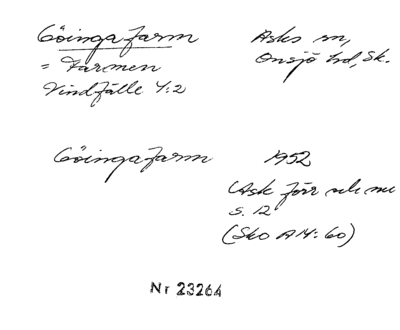 Göingafarm
= Farmen
Vindfälle 4:2
Asks sn,
Onsjö hd, Sk.
Göingafarm 1952
Ask förr och nu
s. 12
(Sko A14: 60)
Nr 23264